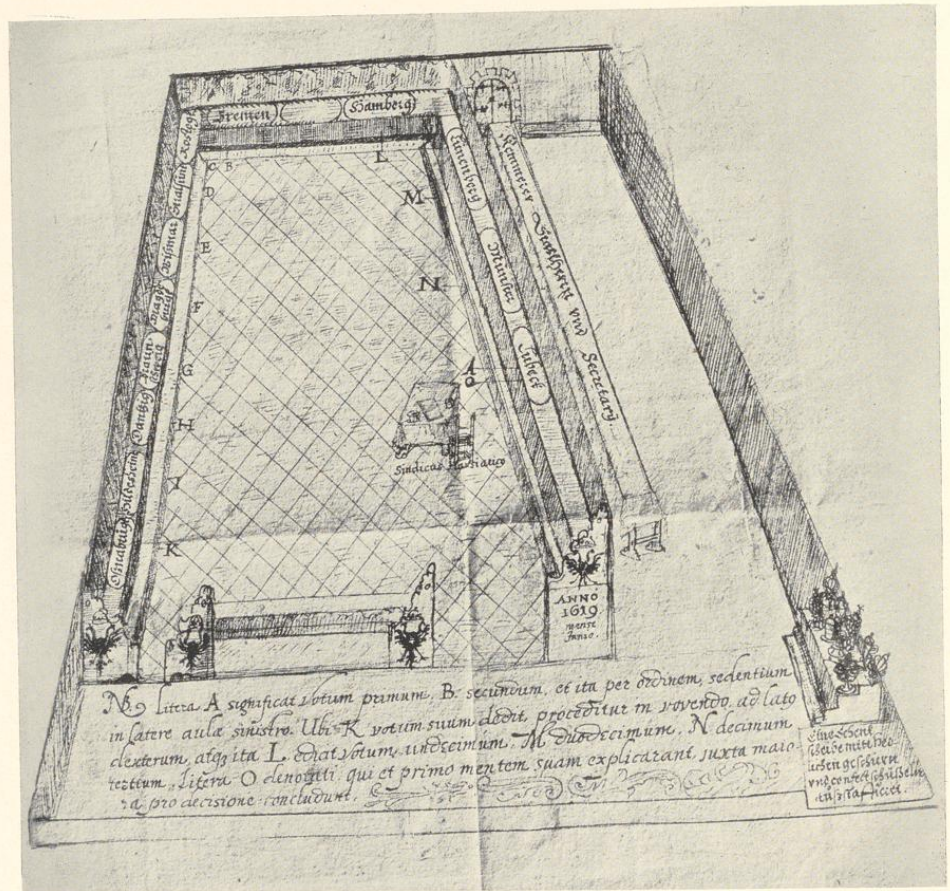 Bremen
Hamberg
Rostogk
Stralsunt
Wismar
Magde
burgk
Braun
Danttzig
Hildesheim
Osnabrug
Lunenberg
Munster
Lubeck
Secretary
L
C B
D
M
E
N
F
G
A
O
H
I
K
Sindicus Hansiatico
ANNO
1619
mense
Junio.
NB. litera A significat votum primum, B. secundum, et ita per ordinem, sedentium
in latere aulæ sinistro. Ubi K votum suum dedit, proceditur in vovendo, ad latq
dexterum, atq ita L edicat votum undecimum, M duodecimum, N decimum
tertium. Litera O denotati qui et primo mentem suam explicarant juxta maio-
ra pro decisione concludunt.
Eine Schent
scheibe mitt
lichen geschirn
und confect schüsseln